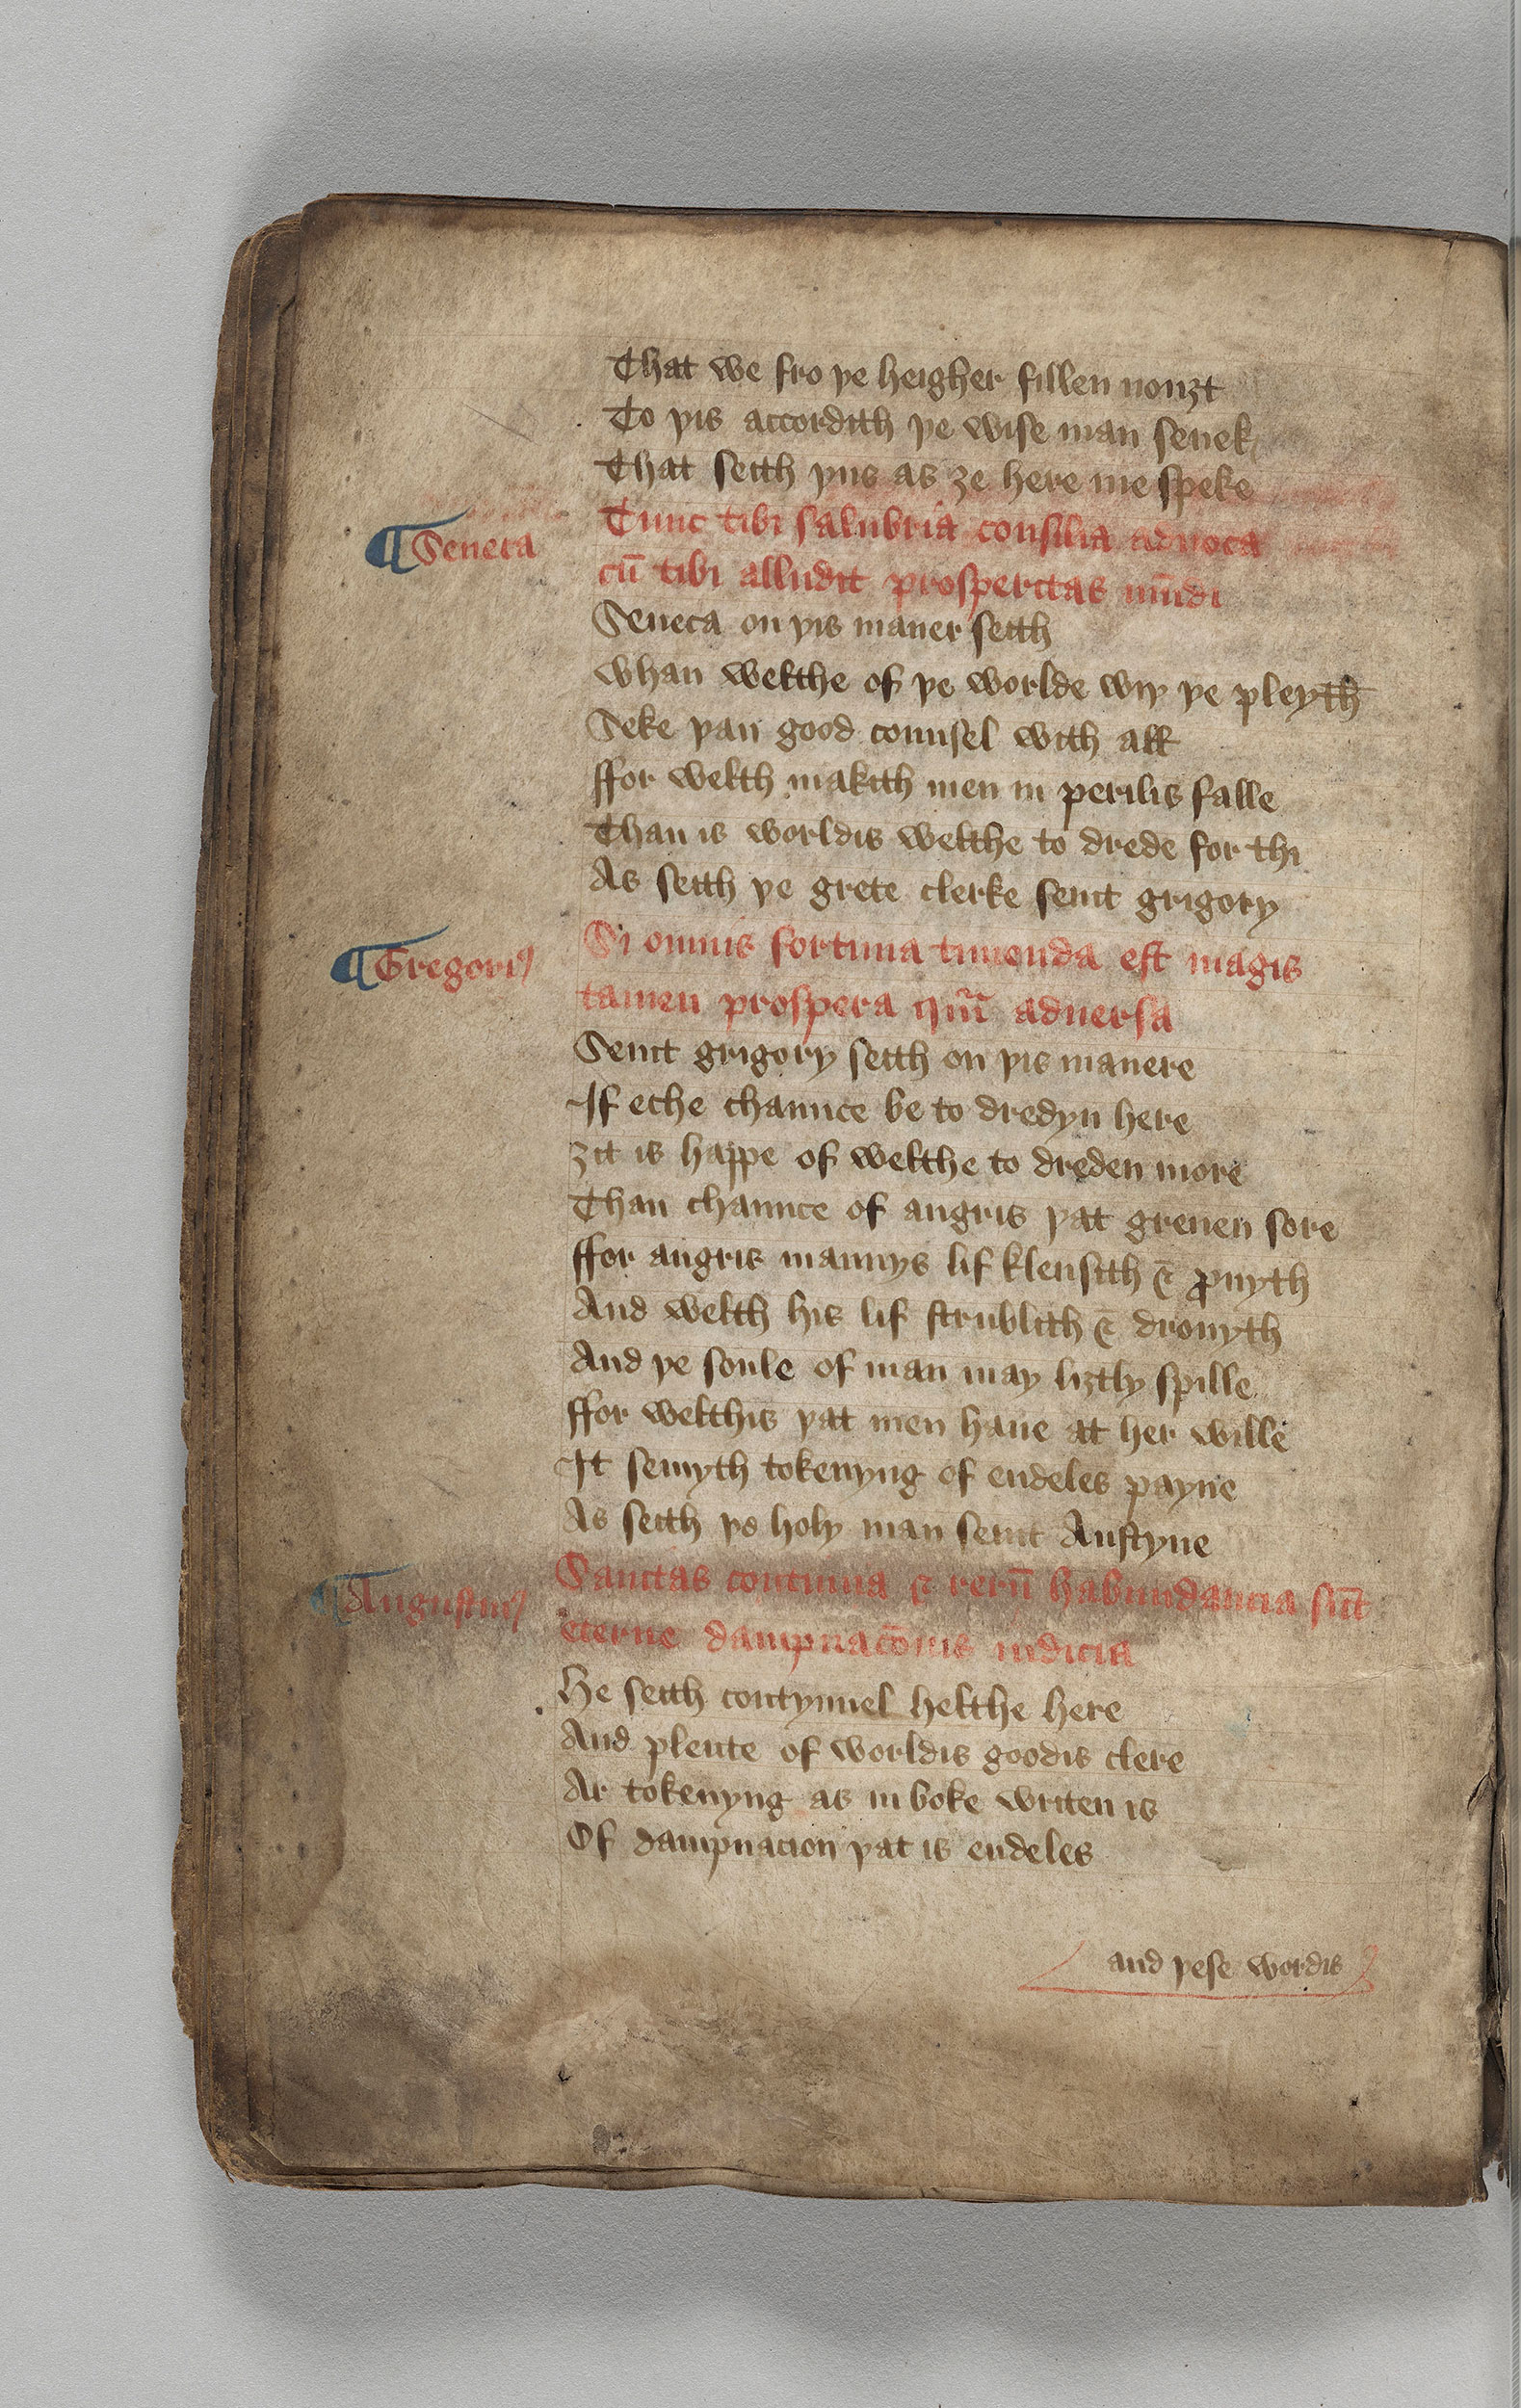 That we fro þe heigher fillen nouȝt
To þis accordith þe wise man senek
That seith þus as ȝe here me speke
¶ Seneca
Tunc tibi salubria consilia aduoca
cū tibi alludit prosperitas mūdi
Seneca on þis maner seith
Whan welthe of þe worlde wiþ þe pleyth
Seke þan good counsel with all
ffor welth makith men in perilis falle
Than is worldis welthe to drede for thi
As seith þe grete clerke seint grigory
¶ Gregoriꝰ
Si omnis fortuna timenda est magis
tamen prospera qm̄ aduersa
Seint grigory seith on þis manere
If eche chaunce be to dredyn here
ȝit is happe of welthe to dreden more
Than chaunce of angris þat greuen sore
ffor angris mannys lif klensith & ꝓuyth
And welth his lif strublith & drouyth
And þe soule of man may liȝtly spille
ffor welthis þat men haue at her wille
It semyth tokenyng of endeles payne
As seith þe holy man seint Austyne
¶ Augustinꝰ
Sanitas continua & rerū habundancia sūt
eterne dampnacōnis indicia
He seith contynuel helthe here
And plente of worldis goodis clere
Ar tokenyng as in boke writen is
Of dampnacion þat is endeles
and þese wordis